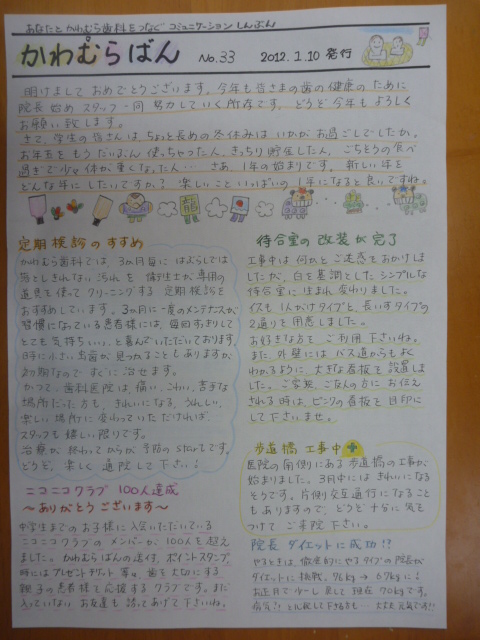 あなたとかわむら歯科をつなぐ コミュニケーションしんぶん
かわむらばん No.33 2012.1.10 発行
明けまして おめでとうございます。今年も皆さまの歯の健康のために
院長始め スタッフ一同 努力していく所存です。どうぞ今年もよろしく
お願い致します。
さて、学生の皆さんは、ちょっと長めの冬休みはいかがお過ごしでしたか。
お年玉をもうだいぶん使っちゃった人、きっちり貯金した人、ごちそうの食べ
過ぎで少々体が重くなった人… さあ、1年の始まりです。新しい年を
どんな年にしたいですか? 楽しいこといっぱいの1年になると良いですね。
定期検診のすすめ
かわむら歯科では、3か月毎に はぶらしでは
落としきれない汚れを 衛生士が専用の
道具を使って クリーニングする 定期検診を
おすすめしています。3か月に一度のメンテナンスが
習慣になっている患者様には、歯口すっきりして
とても気持ちいい、と喜んでいただいております。
時に小さい虫歯が見つかることもありますが、
初期なので すぐに治せます。
かつて、歯科医院は、痛い、こわい、苦手な
場所だった方も、きれいになる、うれしい、
楽しい場所に変わっていただければ、
スタッフも嬉しい限りです。
治療が終わってからが予防のstartです。
どうぞ、楽しく通院して下さい!
ニコニコクラブ 100人達成
～ありがとうございます～
中学生までのお子様に入会いただいている
ニコニコクラブのメンバーが、100人を超え
ました。かわむらばんの送付、ポイントスタンプ、
時にはプレゼントチケット等、歯を大切にする
親子の患者様を応援するクラブです。まだ
入っていないお友達も誘ってあげて下さいね。
待合室の改装が完了
工事中は何かとご迷惑をおかけしま
したが、白を基調としたシンプルな
待合室に生まれ変わりました。
イスも1人がけタイプと、長いすタイプの
2通りを用意しました。
お好きな方を、ご利用下さいね。
また、外壁には バス道からもよく
わかるように、大きな看板を設置しま
した。ご家族、ご友人の方にお伝え
される時は、ピンクの看板を目印に
して下さいませ。
歩道橋工事中
医院の南側にある歩道橋の工事が
始まりました。3月中にはきれいになる
そうです。片側交互通行になること
もありますので、どうぞ十分に気を
つけてご来院下さい。
院長 ダイエットに成功!?
やるときは、徹底的にやるタイプの院長が
ダイエットに挑戦。76kg→67kgに!
お正月で少し戻して現在70kgです。